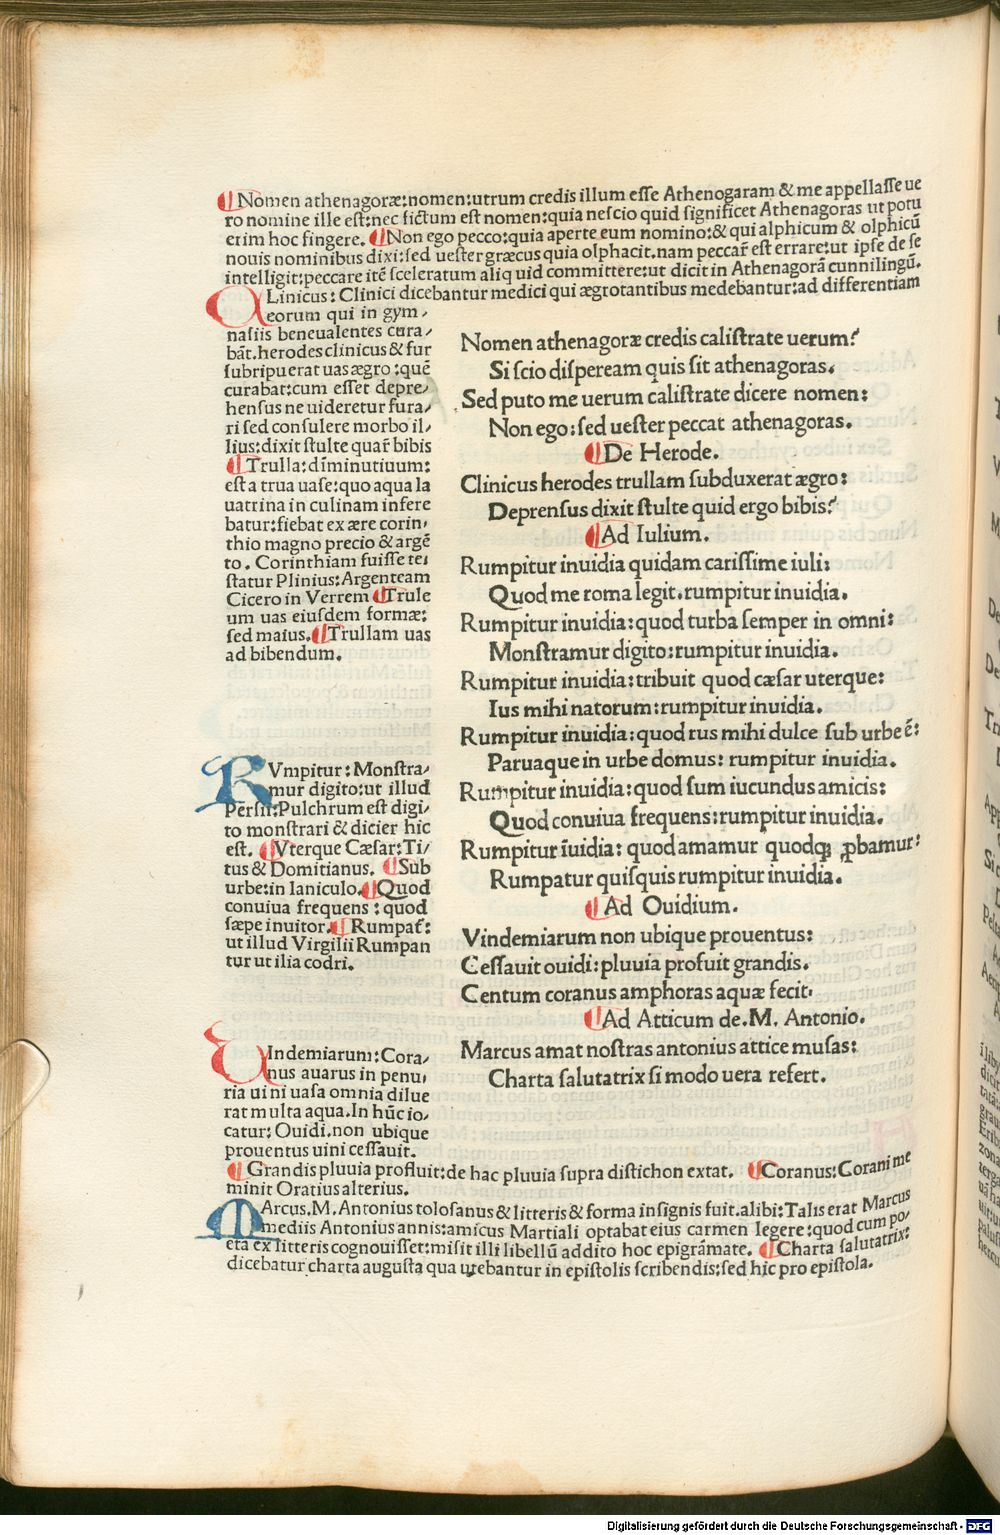 ¶Nomen athenagoræ:nomen:utrum credis illum esse Athenogaram & me appellasse ue
ro nomine ille est:nec fictum est nomen:quia nescio quid significet Athenagoras ut potu
erim hoc fingere. ¶Non ego pecco:quia aperte eum nomino:& qui alphicum & olphicũ
nouis nominibus dixi:sed uester græcus quia olphacit.nam peccar̃ est errare:ut ipse de se
intelligit:peccare itẽ sceleratum aliquid committere:ut dicit in Athenagorã cunnilingũ.
CLinicus: Clinici dicebantur medici qui ægrotantibus medebantur:ad differentiam
eorum qui in gym-
nasiis beneualentes cura-
bãt.herodes clinicus & fur
subripuerat uas ægro:quẽ
curabat:cum esset depre-
hensus ne uideretur fura-
ri sed consulere morbo il-
lius:dixit stulte quar̃ bibis
¶Trulla:diminutiuum:
est a trua uase:quo aqua la
uatrina in culinam infere
batur:fiebat ex ære corin-
thio magno precio & argẽ
to. Corinthiam fuisse tes
statur Plinius:Argenteam
Cicero in Verrem ¶Trule
um uas eiusdem formæ:
sed maius. ¶Trullam uas
ad bibendum.
RVmpitur: Monstra-
mur digito:ut illud
Persii:Pulchrum est digi-
to monstrari & dicier hic
est. ¶Vterque Cæsar: Ti-
tus & Domitianus. ¶Sub
urbe:in Ianiculo. ¶Quod
conuiua frequens: quod
sæpe inuitor. ¶Rumpat̃:
ut illud Virgilii Rumpan
tur ut ilia codri.
VIndemiarum: Cora-
nus auarus in penu-
ria uini uasa omnia dilue
rat multa aqua.In hũc io-
catur: Ouidi.non ubique
prouentus uini cessauit.
Nomen athenagoræ credis calistrate uerum?
Si scio dispeream quis sit athenagoras.
Sed puto me uerum calistrate dicere nomen:
Non ego:sed uester peccat athenagoras.
¶De Herode.
Clinicus herodes trullam subduxerat ægro:
Deprensus dixit stulte quid ergo bibis?
¶Ad Iulium.
Rumpitur inuidia quidam carissime iuli:
Quod me roma legit.rumpitur inuidia.
Rumpitur inuidia:quod turba semper in omni:
Monstramur digito:rumpitur inuidia.
Rumpitur inuidia:tribuit quod cæsar uterque:
Ius mihi natorum:rumpitur inuidia.
Rumpitur inuidia:quod rus mihi dulce sub urbe ẽ:
Paruaque in urbe domus: rumpitur inuidia.
Rumpitur inuidia:quod sum iucundus amicis:
Quod conuiua frequens:rumpitur inuidia.
Rumpitur ĩuidia: quod amamur quodqꝫ ꝓbamur:
Rumpatur quisquis rumpitur inuidia.
¶Ad Ouidium.
Vindemiarum non ubique prouentus:
Cessauit ouidi:pluuia profuit grandis.
Centum coranus amphoras aquæ fecit.
¶Ad Atticum de.M. Antonio.
Marcus amat nostras antonius attice musas:
Charta salutatrix si modo uera refert.
¶Grandis pluuia profluit:de hac pluuia supra distichon extat. ¶Coranus:Corani me
minit Oratius alterius.
MArcus.M.Antonius tolosanus & litteris & forma insignis fuit.alibi:Talis erat Marcus
mediis Antonius annis:amicus Martiali optabat eius carmen legere:quod cum po-
eta ex litteris cognouisset:misit illi libellũ addito hoc epigrãmate. ¶Charta salutatrix:
dicebatur charta augusta qua utebantur in epistolis scribendis:sed hic pro epistola.
Digitalisierung gefördert durch die Deutsche Forschungsgemeinschaft - DFG